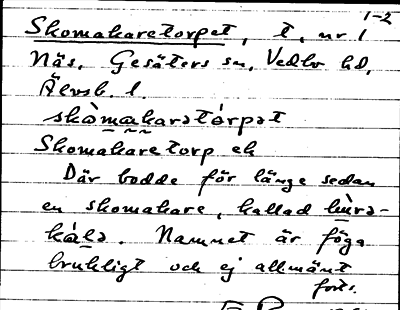 1-2
Skomakaretorpet, t, nr 1
Näs, Gesäters sn, Vedbo hd,
Älvsb. l.
skòmakarətórpət
Skomakaretorp ek
Där bodde för länge sedan
en skomakare, kallad hùrə-
kálə. Namnet är föga
brukligt och ej allmänt
forts.